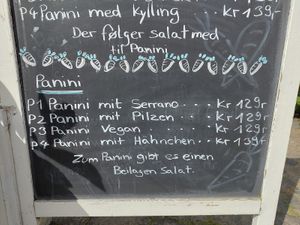 P4 Panini med kylling Kr 139,-
Der følger salat med
til Panini
Panini
P1 Panini mit Serrano . . . Kr 129,-
P2 Panini mit Pilzen . . . Kr 129,-
P3 Panini Vegan . . . Kr 129,-
P4 Panini mit Hähnchen . . Kr 139,-
Zum Panini gibt es einen
Beilagen Salat.